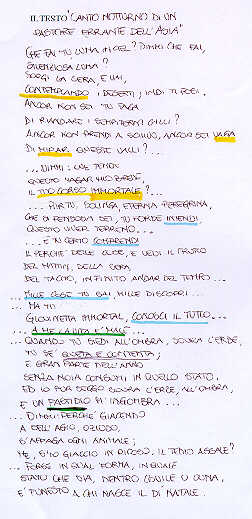 IL TESTO "CANTO NOTTURNO DI UN
PASTORE ERRANTE DELL'ASIA"
CHE FAI TU LUNA IN CIEL? DIMMI CHE FAI,
SILENZIOSA LUNA?
SORGI LA SERA E VAI,
CONTEMPLANDO I DESERTI; INDI TI POSI.
ANCOR NON SEI TU PAGA
DI RIANDARE I SEMPITERNI CALLI?
ANCOR NON PRENDI A SCHIVO, ANCOR SEI VAGA
DI MIRAR QUESTE VALLI? ...
... DIMMI: OVE TENDE
QUESTO VAGAR MIO BREVE,
IL TUO CORSO IMMORTALE? ...
... PUR TU, SOLINGA, ETERNA PEREGRINA,
CHE SÌ PENSOSA SEI, TU FORSE INTENDI,
QUESTO VIVER TERRENO...
... E TU CERTO COMPRENDI
IL PERCHÉ DELLE COSE, E VEDI IL FRUTTO
DEL MATTIN, DELLA SERA,
DEL TACITO, INFINITO ANDAR DEL TEMPO...
... MILLE COSE SAI TU, MILLE DISCOPRI...
... MA TU
GIOVINETTA IMMORTAL, CONOSCI IL TUTTO...
... A ME LA VITA È MALE...
... QUANDO TU SIEDI ALL'OMBRA, SOVRA L'ERBE,
TU SE' QUETA E CONTENTA;
E GRAN PARTE DELL'ANNO
SENZA NOIA CONSUMI IN QUELLO STATO.
ED IO PUR SEGGO SOVRA L'ERBE, ALL'OMBRA,
E UN FASTIDIO M'INGOMBRA...
... DIMMI PERCHÉ GIACENDO
A BELL'AGIO, OZIOSO,
S'APPAGA OGNI ANIMALE;
ME, S'IO GIACCIO IN RIPOSO, IL TEDIO ASSALE?
... FORSE IN QUAL FORMA, IN QUALE
STATO CHE SIA, DENTRO COVILE O CUNA,
È FUNESTO A CHI NASCE IL DÌ NATALE.